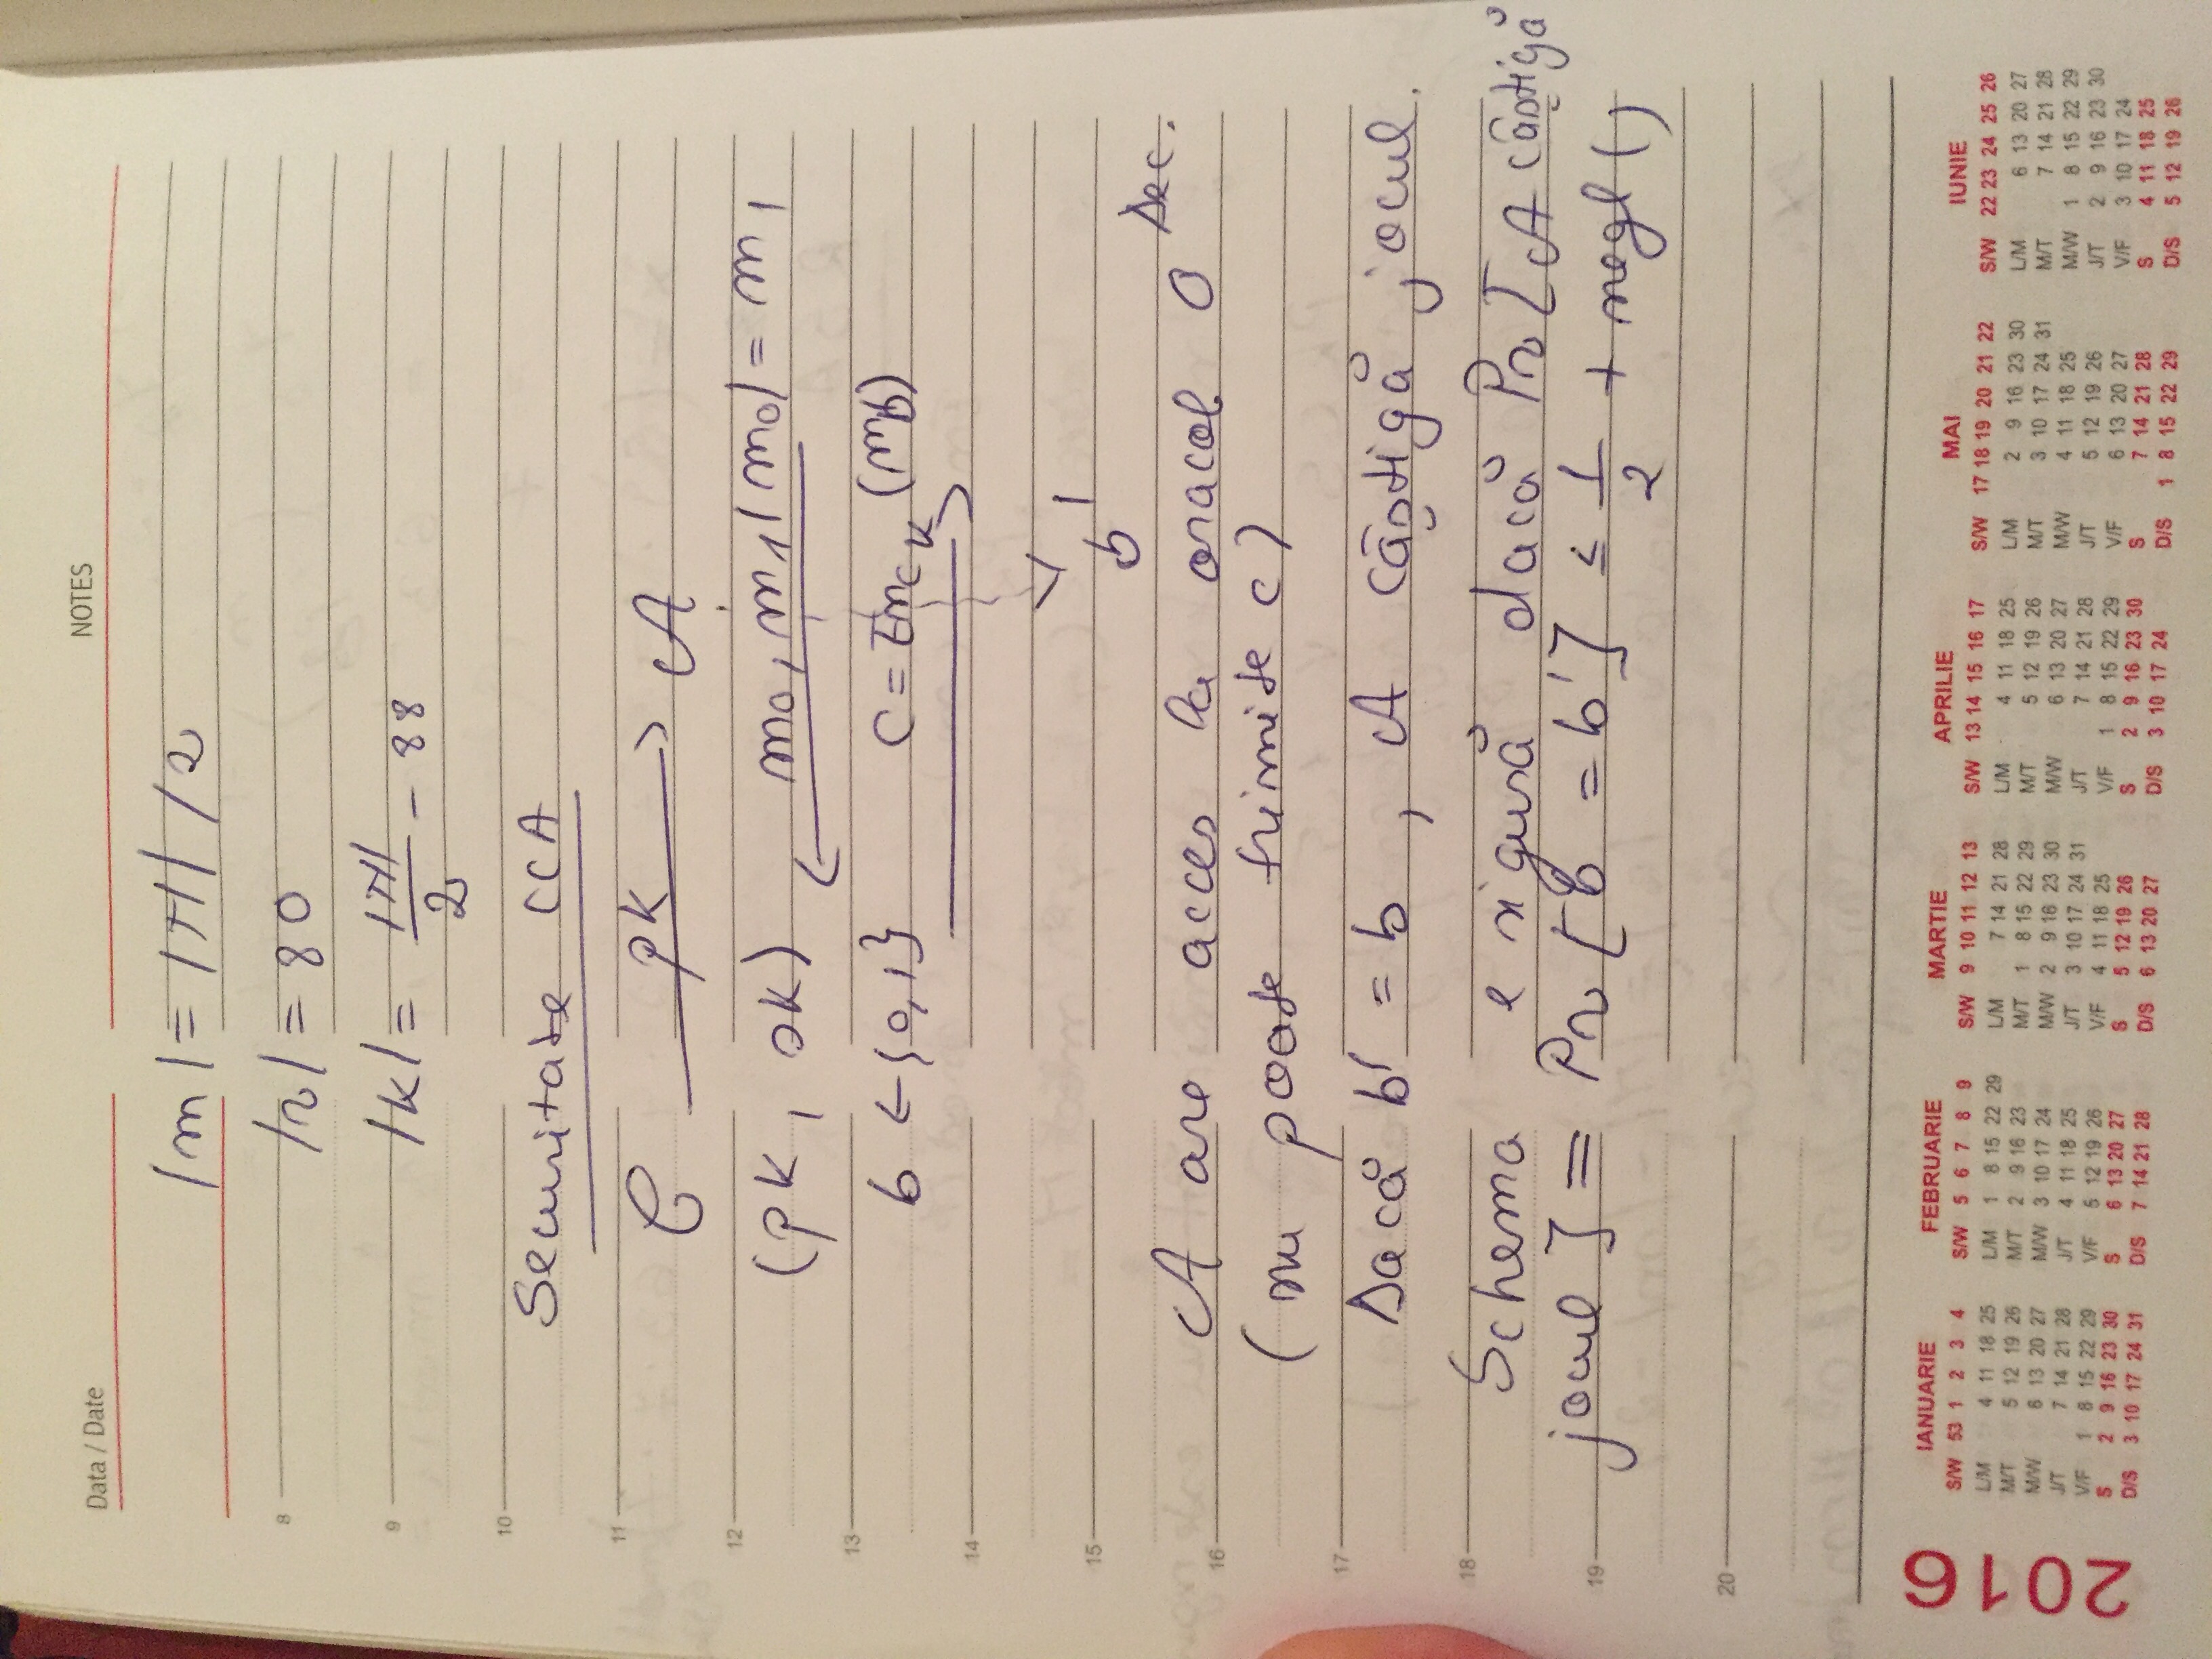 Data / Date NOTES
|m| = |M| / 2
8 |r| = 80
9 |k| = |M|/2 - 88
10
Securitate CCA
11
C pk → A
12
(pk, sk) ← m0, m1, |m0| = m1
13
b ← {0,1} c = Enck (mb) →
14
15
b'
16 A are acces la oracol O Dec.
(nu poate trimite c)
17
Dacă b' = b, A câștigă jocul.
18
Schema e sigură dacă Pr [A câștigă
19 jocul] = Pr [b = b'] ≤ 1/2 + negl ()
20
2016
IANUARIE
S/W 53 1 2 3 4
L/M 4 11 18 25
M/T 5 12 19 26
M/W 6 13 20 27
J/T 7 14 21 28
V/F 1 8 15 22 29
S 2 9 16 23 30
D/S 3 10 17 24 31
FEBRUARIE
S/W 5 6 7 8 9
L/M 1 8 15 22 29
M/T 2 9 16 23
M/W 3 10 17 24
J/T 4 11 18 25
V/F 5 12 19 26
S 6 13 20 27
D/S 7 14 21 28
MARTIE
S/W 9 10 11 12 13
L/M 7 14 21 28
M/T 1 8 15 22 29
M/W 2 9 16 23 30
J/T 3 10 17 24 31
V/F 4 11 18 25
S 5 12 19 26
D/S 6 13 20 27
APRILIE
S/W 13 14 15 16 17
L/M 4 11 18 25
M/T 5 12 19 26
M/W 6 13 20 27
J/T 7 14 21 28
V/F 1 8 15 22 29
S 2 9 16 23 30
D/S 3 10 17 24
MAI
S/W 17 18 19 20 21 22
L/M 2 9 16 23 30
M/T 3 10 17 24 31
M/W 4 11 18 25
J/T 5 12 19 26
V/F 6 13 20 27
S 7 14 21 28
D/S 1 8 15 22 29
IUNIE
S/W 22 23 24 25 26
L/M 6 13 20 27
M/T 7 14 21 28
M/W 1 8 15 22 29
J/T 2 9 16 23 30
V/F 3 10 17 24
S 4 11 18 25
D/S 5 12 19 26